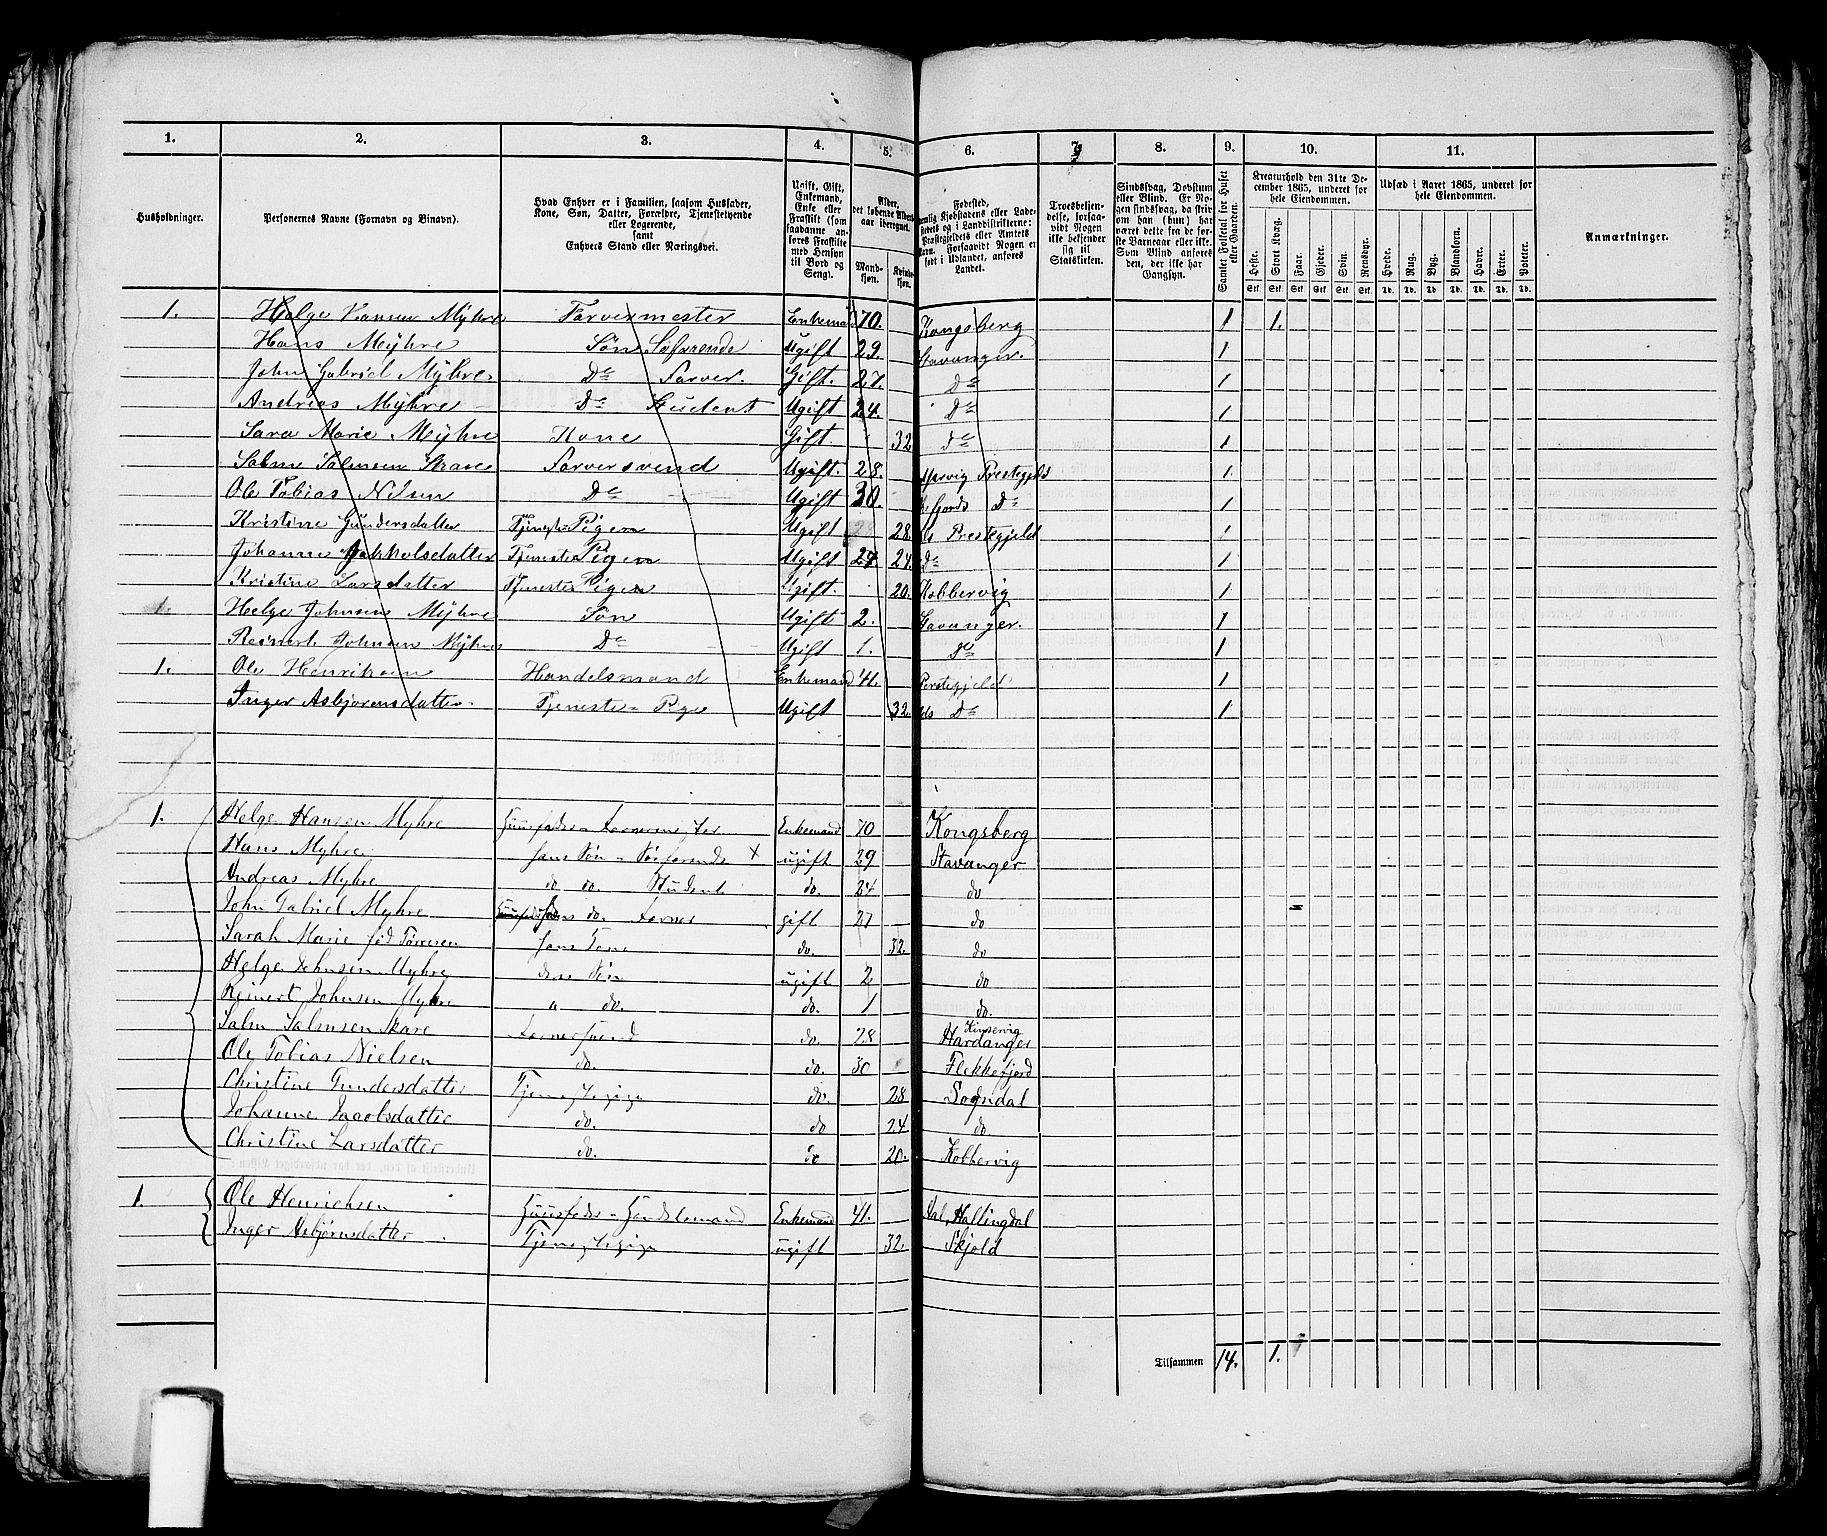 1. 2. 3. 4. 5. 6. 7. 8. 9. 10. 11.
Husholdninger.
Personernes Navne (Fornavn og Binavn).
Hvad Enhver er i Familien, saasom Husfader,
Kone, Søn, Datter, Forældre, Tjenestetyende
eller Logerende,
samt
Enhvers Stand eller Næringsvei.
Ugift, Gift,
Enkemand,
Enke eller
Fraskilt (som
saadanne an-
føres Fraskilte
med Hensyn
til Bord og
Seng).
Alder,
det løbende Alders-
aar iberegnet.
Mand-
kjøn.
Kvinde-
kjøn.
Fødested,
Kjøbstadens eller Lade-
stedets og i Landdistrikterne:
Præstegjeldets eller Amtets
Navn. Forsaavidt Nogen er
født i Udlandet, anføres
Landet.
Troesbekjen-
delse, forsaa-
vidt Nogen
ikke bekjender
sig til
Statskirken.
Sindssvag, Døvstum
eller Blind. Er No-
gen sindssvag, da skriv
om han (hun) har
været dette fra de før-
ste Barneaar eller ikke.
Som Blind anføres
den, der ikke har
Gangsyn.
Samlet Folketal for Huset
eller Gaarden.
Kreaturhold den 31te De-
cember 1865, underet for
hele Eiendommen.
Heste. Stort Kvæg. Faar. Gjeder. Svin. Rensdyr.
Stk. Stk. Stk. Stk. Stk. Stk.
Udsæd i Aaret 1865, underet for
hele Eiendommen.
Hvede. Rug. Byg. Blandkorn. Havre. Erter. Poteter.
Td. Td. Td. Td. Td. Td. Td.
Anmærkninger.
1. Helge Hansen Myhre Farvermester Enkemand 70. Kongsberg 1 1.
Hans Myhre Søn Søfarende Ugift 29. Stavanger. 1
John Gabriel Myhre Do Farver. Gift. 27. Do 1
Andreas Myhre Do Student Ugift 24. Do 1
Sara Marie Myhre Kone Gift 32 Do 1
Salm Salmsen Skare Farversvend Ugift. 28. Prestegjeld 1
Ole Tobias Nilsen Do Ugift 30. Do 1
Kristine Gundersdatter Tjeneste Pigen Ugift 28. Prestegjeld 1
Johanne Jakhobsdatter Tjeneste Pigen Ugift 24 24. Do 1
Kristine Larsdatter Tjeneste Pigen Ugift. 20. Kobbervig 1
1. Helge Johnsen Myhre Søn Ugift 2. Stavanger. 1
Reinert Johnsen Myhre Do Ugift 1. Do 1
1. Ole Henriksen Handelsmand Enkemand 41. Prestegjeld 1
Inger Asbjørensdatter Tjeneste Pige Ugift 32. Do 1
1. Helge Hansen Myhre Huusfader Farvermester Enkemand 70 Kongsberg
Hans Myhre hans Søn Søfarende X ugift 29 Stavanger
Andreas Myhre do do. Student do. 24 do
John Gabriel Myhre hans do. Farver gift 27 do
Sarah Marie fød Tørresen hans Kone do. 32. do
Helge Johnsen Myhre deres Søn ugift 2 do
Reinert Johnsen Myhre " do. do. 1 do.
Salm Salmsen Skare Farversvend do. 28 Kinservig Hardanger
Ole Tobias Nielsen do. do. 30 Flekkefjord
Christine Gundersdatter Tjenestepige do. 28 Sogndal
Johanne Jacobsdatter do. do 24 do
Christine Larsdatter do. do 20. Kobbervig
1. Ole Henrichsen Huusfader Handelsmand Enkemand 41. Aal, Hallingdal
Inger Asbjørnsdatter Tjenestepige ugift 32. Skjold
Tilsammen 14. 1.